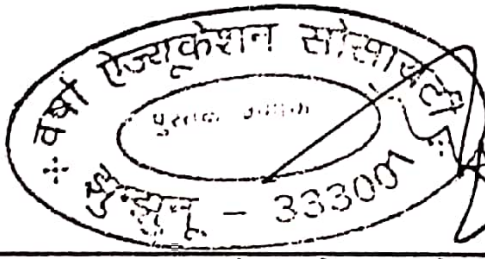 वर्षा ऐज्यूकेशन सोसायटी
पुस्तक
झुन्झुनू - 333001